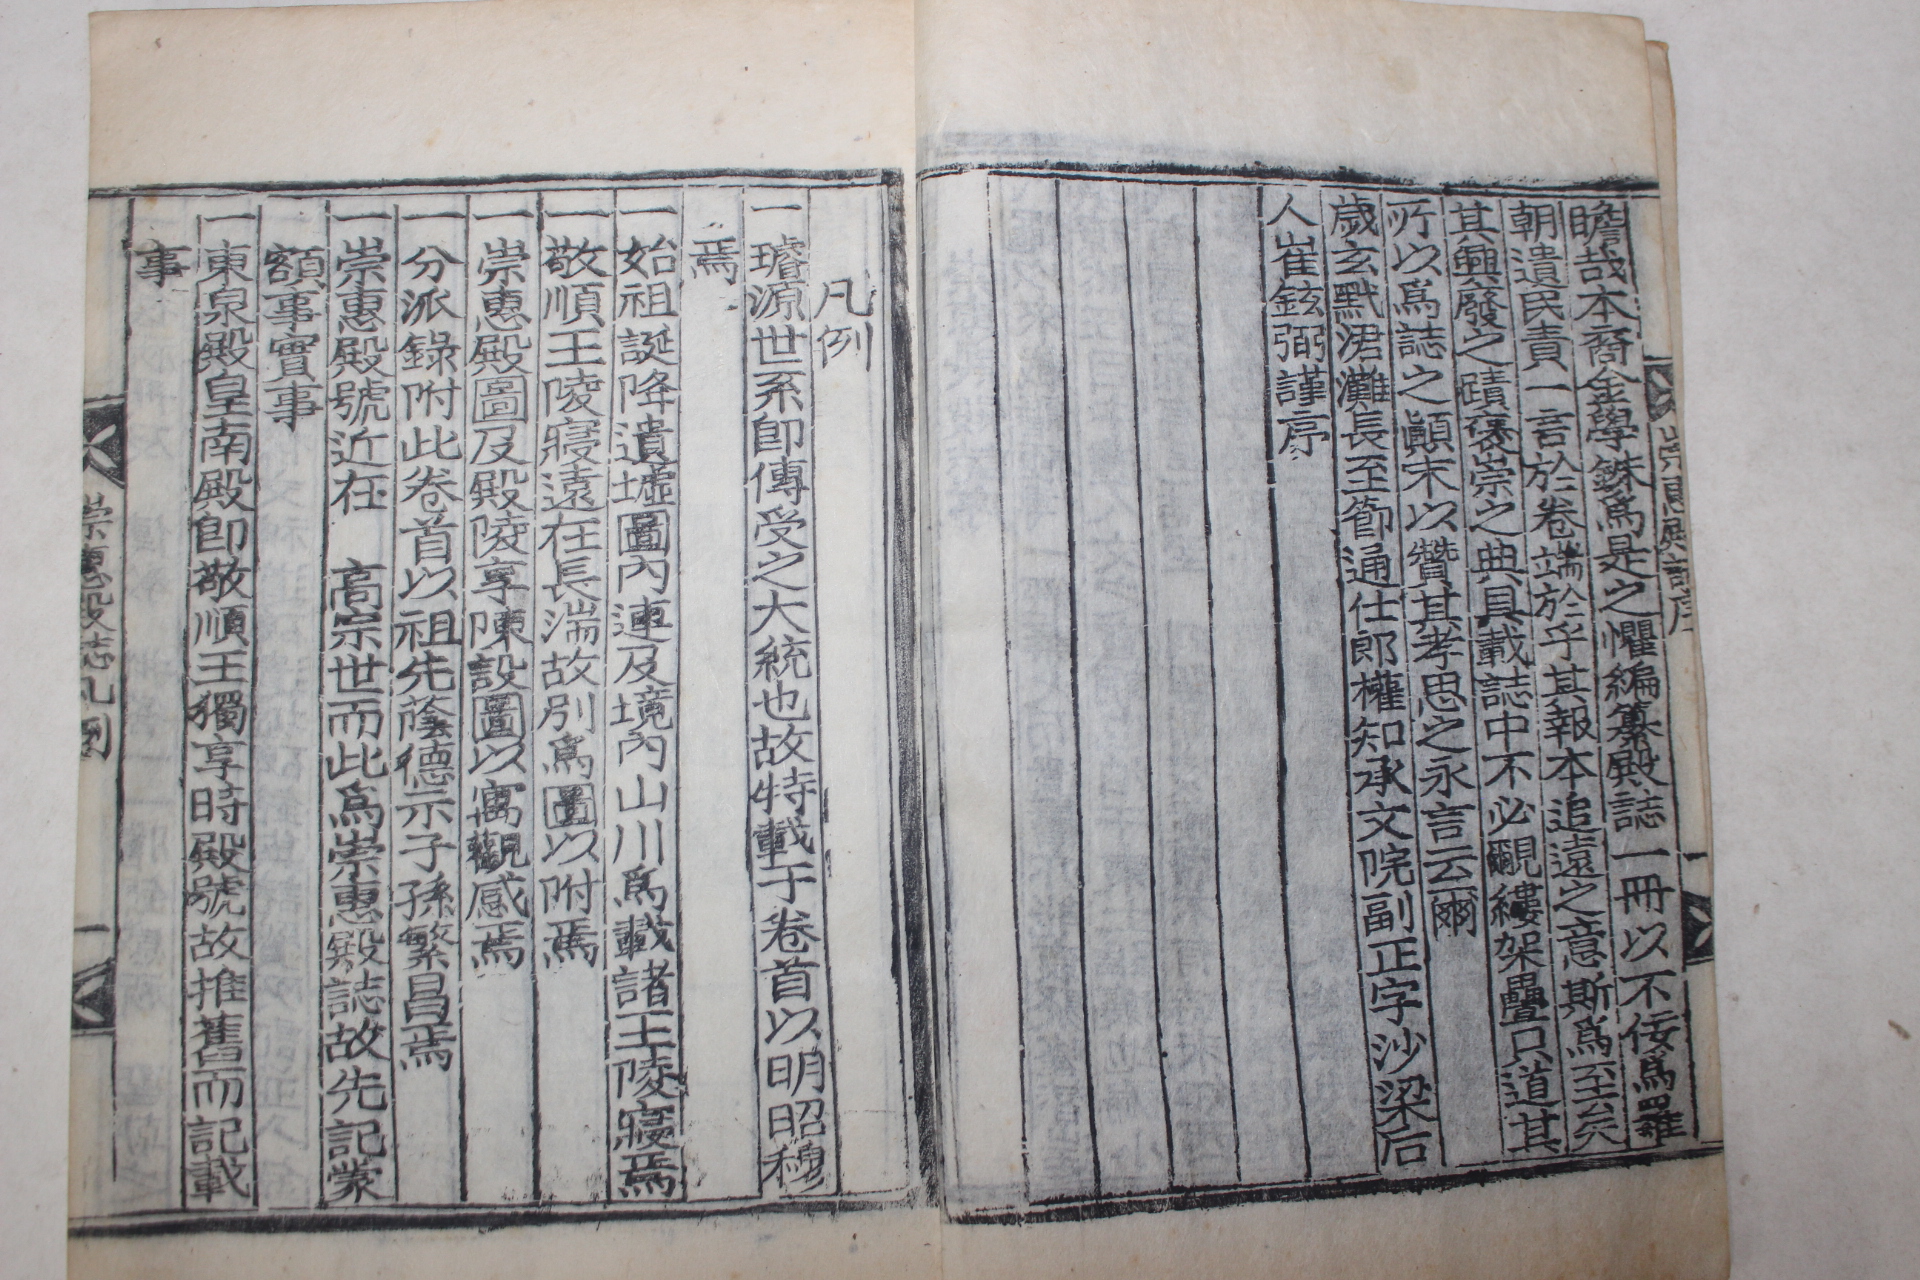 崇惠殿誌序
瞻哉本裔金學銖爲是之懼編纂殿誌一冊以不佞爲羅
朝遺民責一言於卷端於乎其報本追遠之意斯爲至矣
其興廢之蹟褒崇之典具載誌中不必覼縷架疊只道其
所以爲誌之顚末以贊其孝思之永言云爾
歲玄黓涒灘長至節通仕郎權知承文院副正字沙梁后
人崔鉉弼謹序
凡例
一璿源世系卽傳受之大統也故特載于卷首以明昭穆
焉
一始祖誕降遺墟圖內連及境內山川爲載諸王陵寢焉
一敬順王陵寢遠在長湍故別爲圖以附焉
一崇惠殿圖及殿陵享陳設圖以寓觀感焉
一分派錄附此卷首以祖先蔭德示子孫繁昌焉
一崇惠殿號近在 高宗世而此爲崇惠殿誌故先記蒙
額事實事
一東泉殿皇南殿卽敬順王獨享時殿號故推舊而記載
事
崇惠殿誌凡例